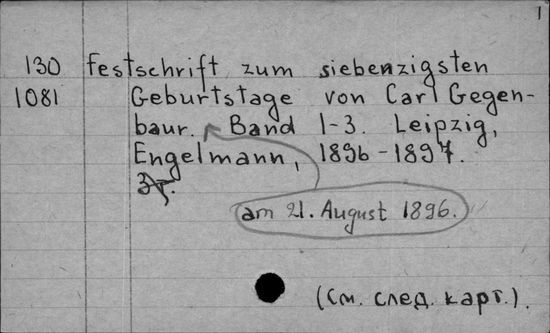 1
130 Festschrift zum siebenzigsten
1081 Geburtstage von Carl Gegen-
baur. Band 1-3. Leipzig,
Engelmann, 1896-1897.
3т.
am 21. August 1896.
(См. след. карт.).